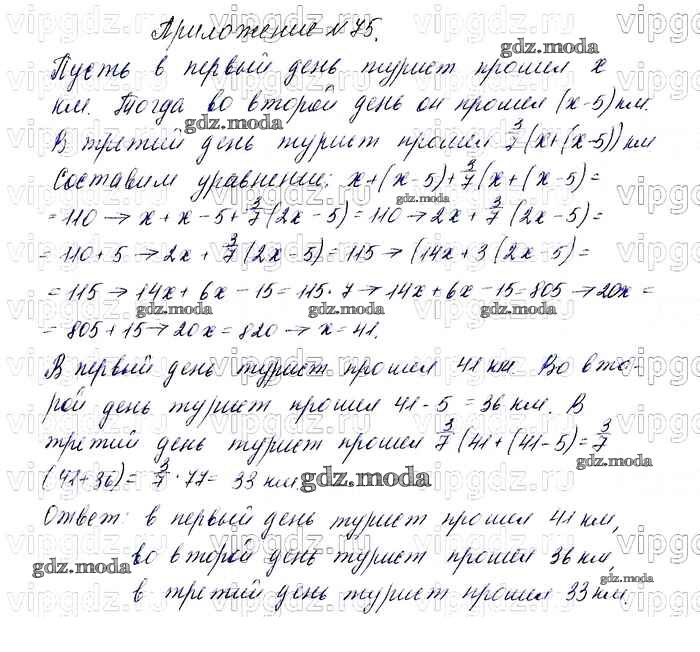 Приложение №75.
Пусть в первый день турист прошел x
км. Тогда во второй день он прошел (x-5) км.
В третий день турист прошел 3/7(x+(x-5)) км
Составим уравнении: x+(x-5)+3/7(x+(x-5)=
=110→x+x-5+3/7(2x-5)=110→2x+3/7(2x-5)=
=110+5→2x+3/7(2x-5)=115→(14x+3(2x-5)=
=115→14x+6x-15=115·7→14x+6x-15=805→20x=
=805+15→20x=820→x=41.
В первый день турист прошел 41 км Во вто-
рой день турист прошел 41-5=36 км. В
третий день турист прошел 3/7(41+(41-5)=3/7
(41+36)=3/7·77=33 км.
Ответ: в первый день турист прошел 41 км,
во второй день турист прошел 36 км,
в третий день турист прошел 33 км.
gdz.moda
vipgdz.ru